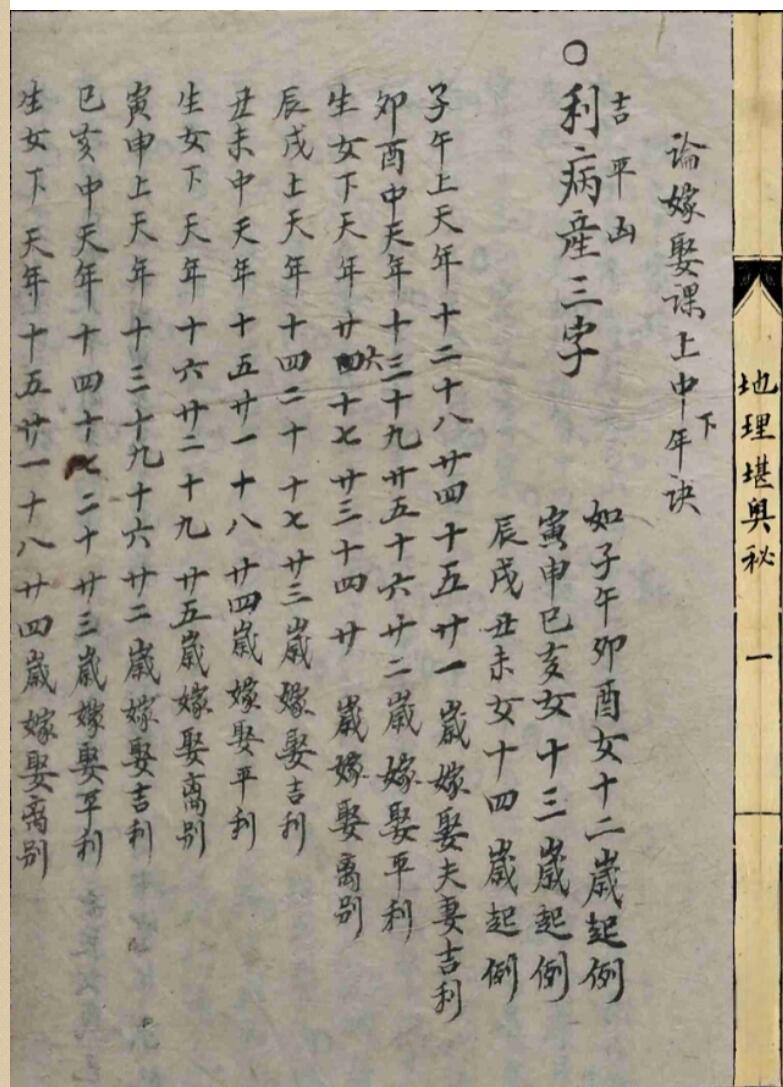 地理堪奥秘 一
論嫁娶課上中下年诀
如子午卯酉女十二歲起例
寅申巳亥女十三歲起例
辰戌丑未女十四歲起例
吉平凶
○利病産三字
子午上天年十二十八廿四十五廿一歲嫁娶夫妻吉利
卯酉中天年十三十九廿五十六廿二歲嫁娶平利
生女下天年廿六十七廿三十四廿歲嫁娶离别
辰戌上天年十四二十十七廿三歲嫁娶吉利
丑未中天年十五廿一十八廿四歲嫁娶平利
生女下天年十六廿二十九廿五歲嫁娶离别
寅申上天年十三十九十六廿二歲嫁娶吉利
巳亥中天年十四十七二十廿三歲嫁娶平利
生女下天年十五廿一十八廿四歲嫁娶离别